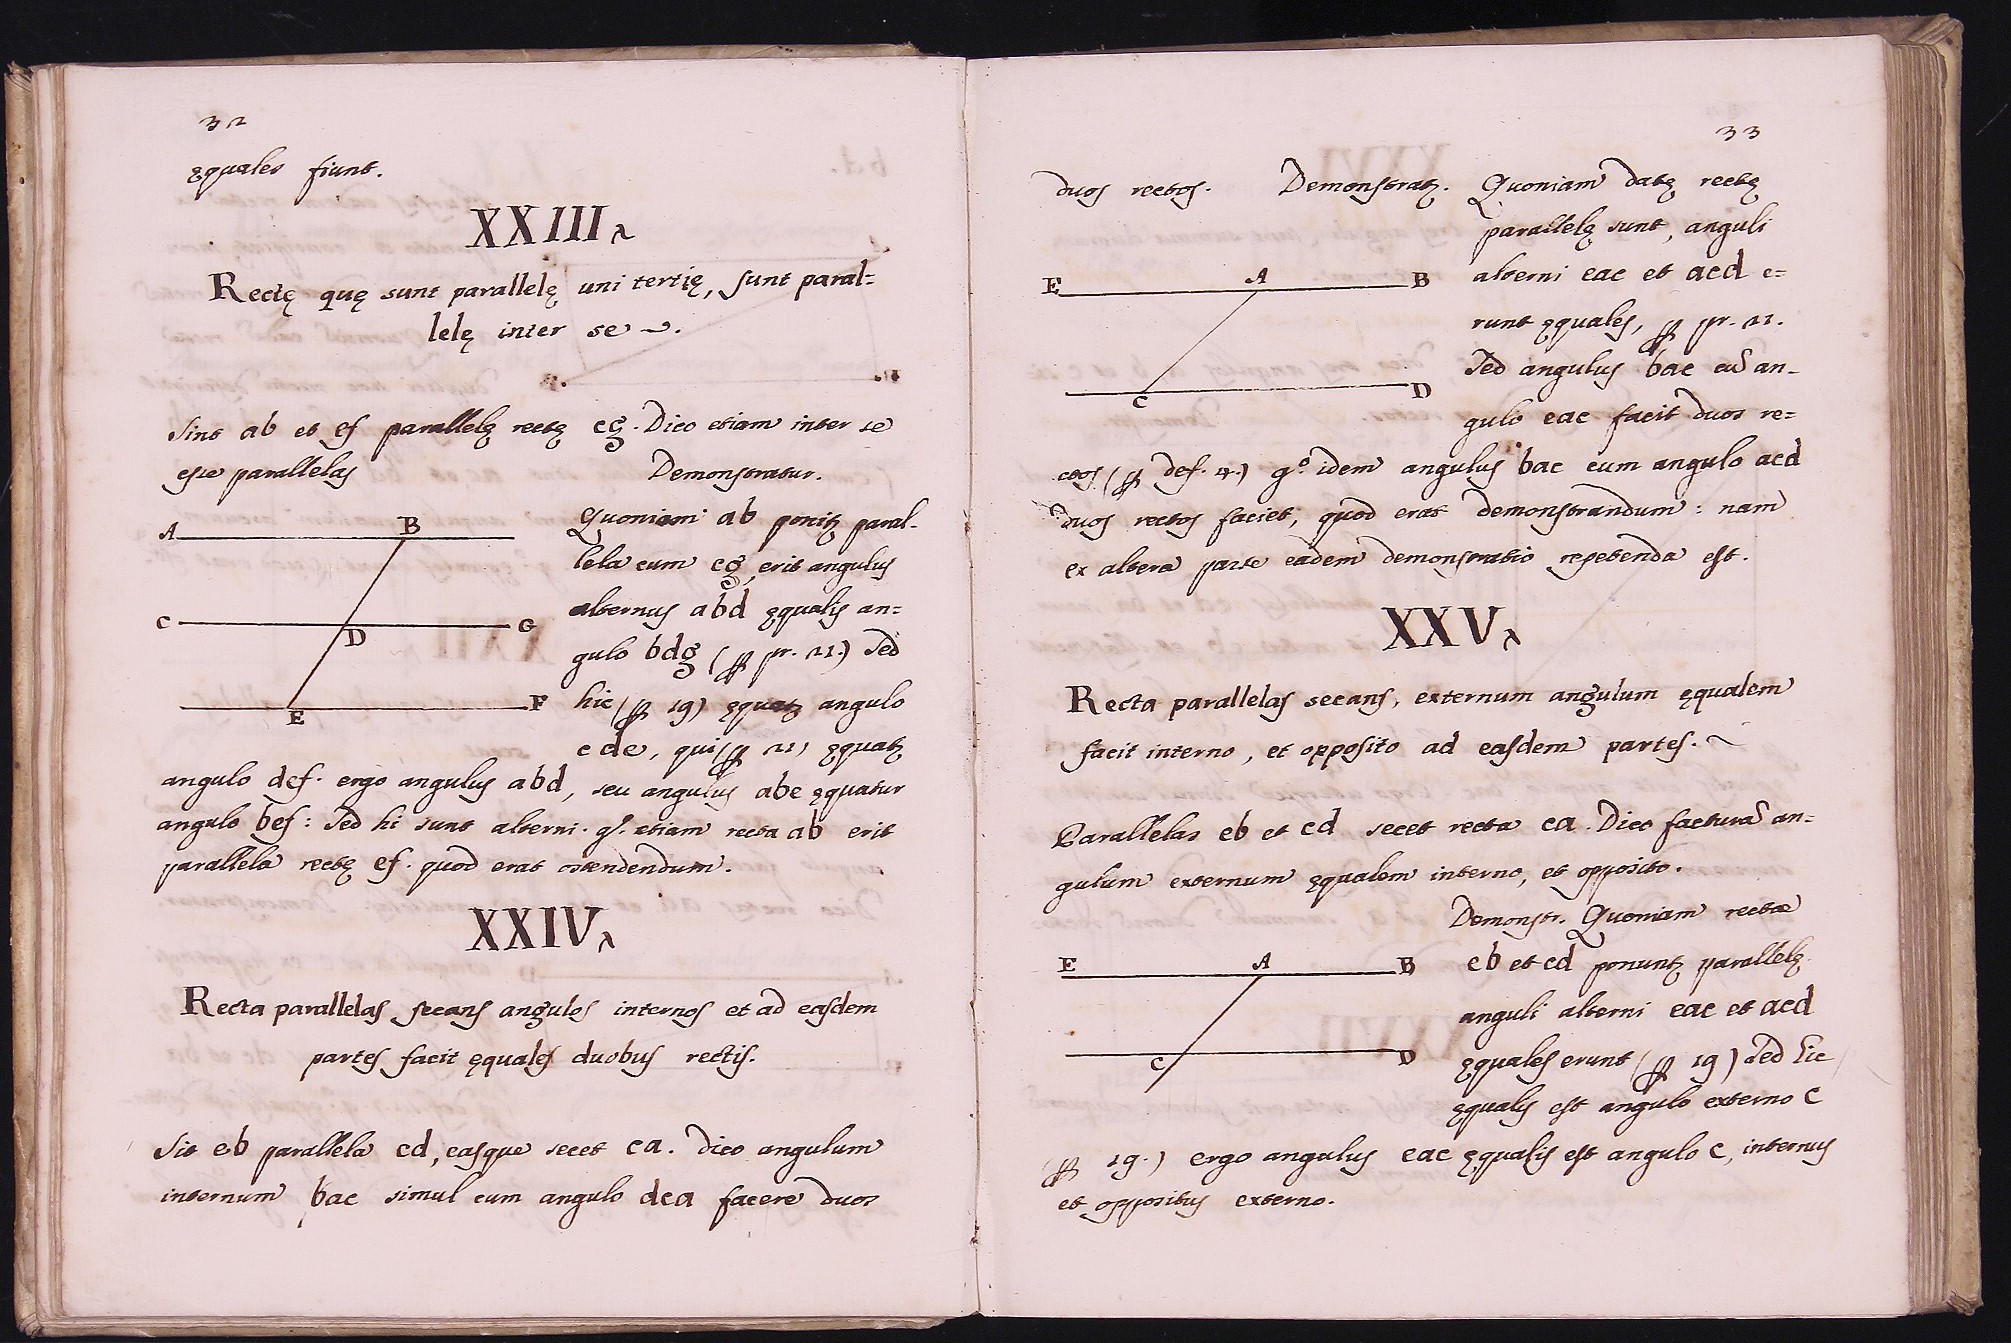 32
ęquales fiunt.
XXIII
Rectę quę sunt parallelę uni tertię, sunt paral-
lelę inter se.
Sint ab et ef parallelę rectę cg. Dico etiam inter se
esse parallelas
Demonstratur.
A B
C D G
E F
Quoniam ab ponitur paral-
lela cum cg, erit angulus
alternus abd ęqualis an=
gulo bdg (per pr. 21.) Sed
hic (per 19) ęquatur angulo
cde, qui (per 21) ęquatur
angulo def. ergo angulus abd, seu angulus abe ęquatur
angulo bef: Sed hi sunt alterni. g.º etiam recta ab erit
parallela rectę ef. quod erat ostendendum.
XXIV
Recta parallelas secans angulos internos et ad easdem
partes facit ęquales duobus rectis.
Sit eb parallela cd, easque secet ca. Dico angulum
internum bac simul cum angulo dca facere duos
33
duos rectos. Demonstratur. Quoniam datę rectę
parallelę sunt, anguli
alterni eac et acd e=
runt ęquales, per pr. 21.
Sed angulus bac cū an-
gulo eac facit duos re=
ctos (per def. 4.) g.º idem angulus bac cum angulo acd
duos rectos faciet, quod erat demonstrandum: nam
ex altera parte eadem demonstratio repetenda est.
E A B
C D
XXV
Recta parallelas secans, externum angulum ęqualem
facit interno, et opposito ad easdem partes.
Parallelas eb et cd secet recta ca. Dico facturā an=
gulum externum ęqualem interno, et opposito.
Demonstr. Quoniam rectæ
eb et cd ponuntur parallelę
anguli alterni eac et acd
ęquales erunt (per 19) Sed hic
ęqualis est angulo externo c
(per 19.) ergo angulus eac ęqualis est angulo c, internus
et oppositus externo.
E A B
C D